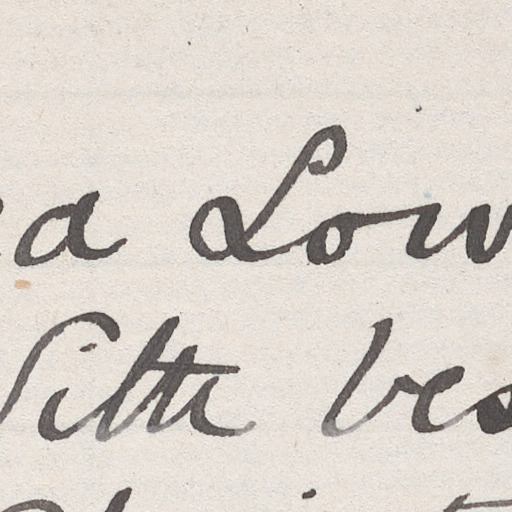 a Low
With bes